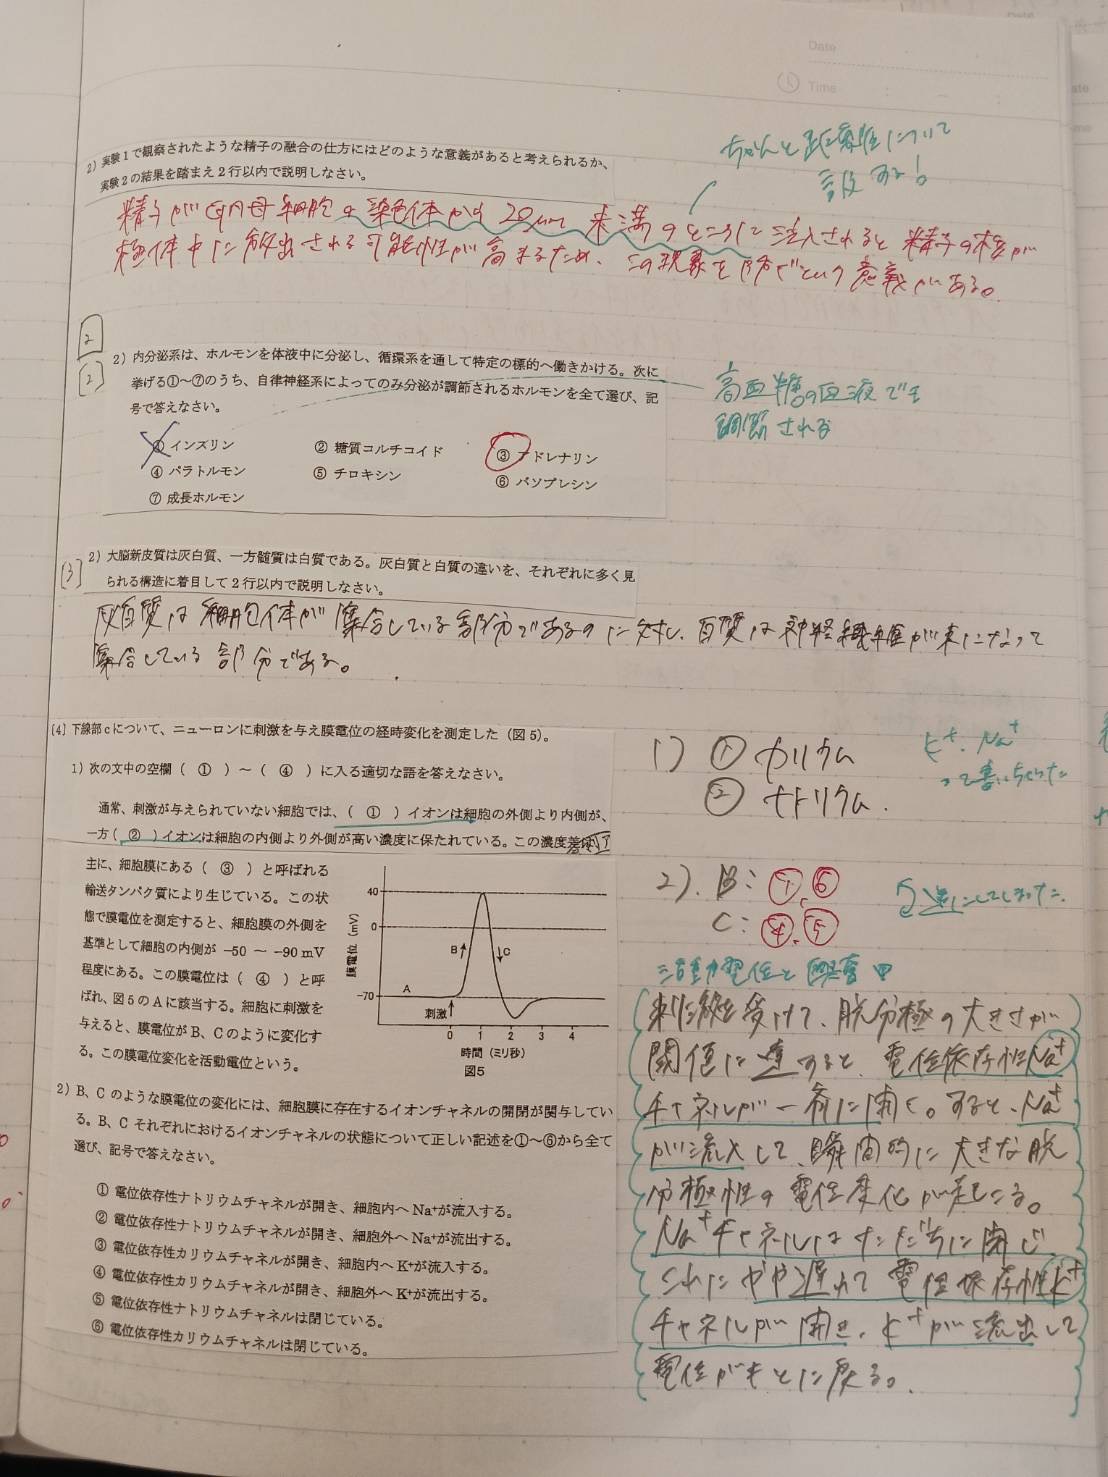 Date
Time
ちゃんと距離について
言及する!
2) 実験1で観察されたような精子の融合の仕方にはどのような意義があると考えられるか、
実験2の結果を踏まえ2行以内で説明しなさい。
精子が卵母細胞の染色体から20μm未満のところに注入されると精子の核が
極体中に放出される可能性が高まるため、この現象を防ぐという意義がある。
2
[2]
2) 内分泌系は、ホルモンを体液中に分泌し、循環系を通して特定の標的へ働きかける。次に
挙げる①~⑦のうち、自律神経系によってのみ分泌が調節されるホルモンを全て選び、記
号で答えなさい。
高血糖の血液でも
調節される
① インズリン ② 糖質コルチコイド ③ アドレナリン
④ パラトルモン ⑤ チロキシン ⑥ バソプレシン
⑦ 成長ホルモン
[3]
2) 大脳新皮質は灰白質、一方髄質は白質である。灰白質と白質の違いを、それぞれに多く見
られる構造に着目して2行以内で説明しなさい。
灰白質は細胞体が集合している部分であるのに対し、白質は神経繊維が束になって
集合している部分である。
[4] 下線部cについて、ニューロンに刺激を与え膜電位の経時変化を測定した(図5)。
1) 次の文中の空欄( ① )~( ④ )に入る適切な語を答えなさい。
通常、刺激が与えられていない細胞では、( ① )イオンは細胞の外側より内側が、
一方( ② )イオンは細胞の内側より外側が高い濃度に保たれている。この濃度差は
主に、細胞膜にある( ③ )と呼ばれる
輸送タンパク質により生じている。この状
態で膜電位を測定すると、細胞膜の外側を
基準として細胞の内側が -50 ~ -90 mV
程度にある。この膜電位は( ④ )と呼
ばれ、図5のAに該当する。細胞に刺激を
与えると、膜電位がB、Cのように変化す
る。この膜電位変化を活動電位という。
膜電位 (mV)
40
0
-70
A
B
C
刺激
0 1 2 3 4
時間(ミリ秒)
図5
2) B、Cのような膜電位の変化には、細胞膜に存在するイオンチャネルの開閉が関与してい
る。B、Cそれぞれにおけるイオンチャネルの状態について正しい記述を①~⑥から全て
選び、記号で答えなさい。
① 電位依存性ナトリウムチャネルが開き、細胞内へNa⁺が流入する。
② 電位依存性ナトリウムチャネルが開き、細胞外へNa⁺が流出する。
③ 電位依存性カリウムチャネルが開き、細胞内へK⁺が流入する。
④ 電位依存性カリウムチャネルが開き、細胞外へK⁺が流出する。
⑤ 電位依存性ナトリウムチャネルは閉じている。
⑥ 電位依存性カリウムチャネルは閉じている。
1) ① カリウム
② ナトリウム.
K⁺、Na⁺
って書いちゃった
2). B: ①,⑥
C: ④,⑤
逆にしてしまった.
活動電位と興奮
刺激を受けて、脱分極の大きさが
閾値に達すると、電位依存性Na⁺
チャネルが一斉に開く。すると、Na⁺
が流入して、瞬間的に大きな脱
分極性の電位変化が起こる。
Na⁺チャネルはただちに閉じ、
これにやや遅れて電位依存性K⁺
チャネルが開き、K⁺が流出して
電位がもとに戻る。